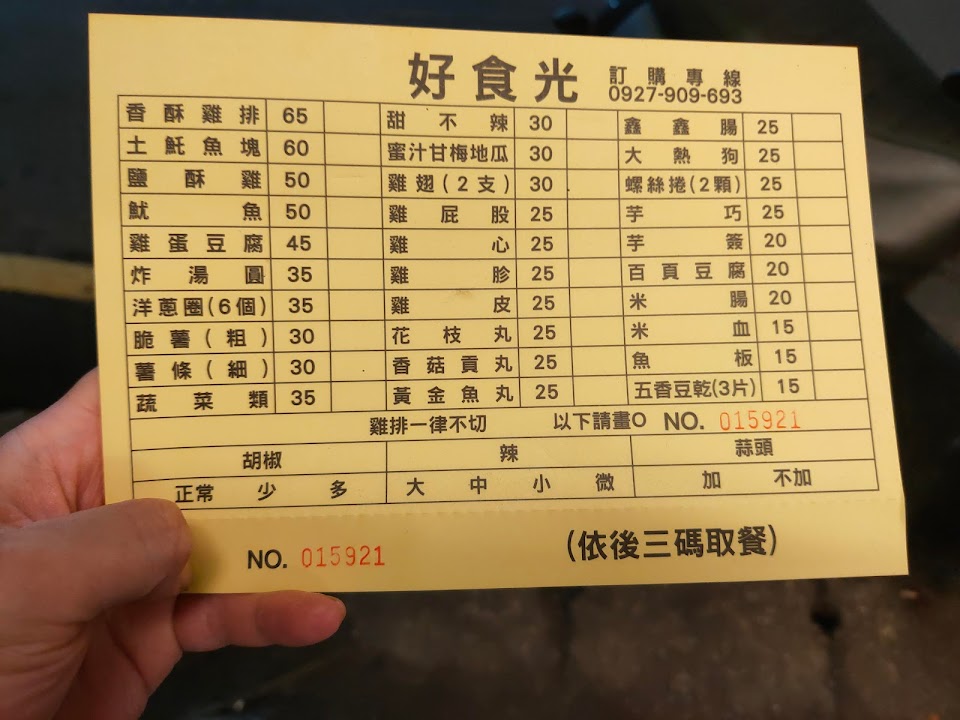 好食光 訂購專線
0927-909-693
香酥雞排 65 甜不辣 30 鑫鑫腸 25
土魠魚塊 60 蜜汁甘梅地瓜 30 大熱狗 25
鹽酥雞 50 雞翅(2支) 30 螺絲捲(2顆) 25
魷魚 50 雞屁股 25 芋巧 25
雞蛋豆腐 45 雞心 25 芋簽 20
炸湯圓 35 雞胗 25 百頁豆腐 20
洋蔥圈(6個) 35 雞皮 25 米腸 20
脆薯(粗) 30 花枝丸 25 米血 15
薯條(細) 30 香菇貢丸 25 魚板 15
蔬菜類 35 黃金魚丸 25 五香豆乾(3片) 15
雞排一律不切 以下請畫O NO. 015921
胡椒 辣 蒜頭
正常 少 多 大 中 小 微 加 不加
NO. 015921 (依後三碼取餐)